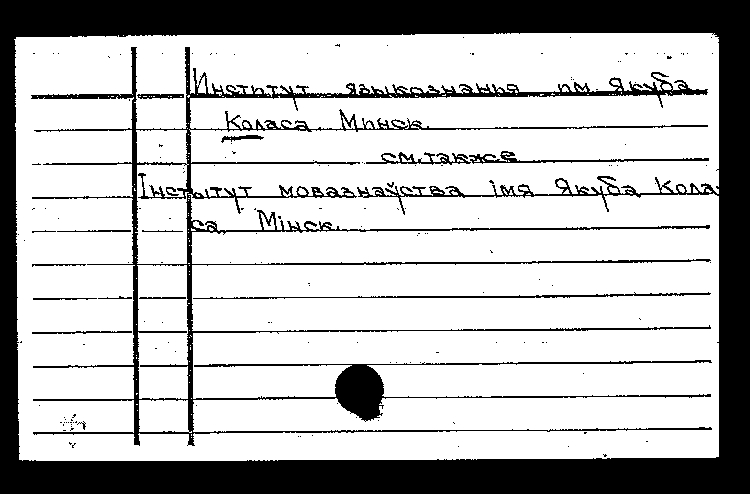 Институт языкознанья им. Якуба
Коласа. Минск.
см. также
Інстытут мовазнаўства імя Якуба Кола-
са. Мінск.